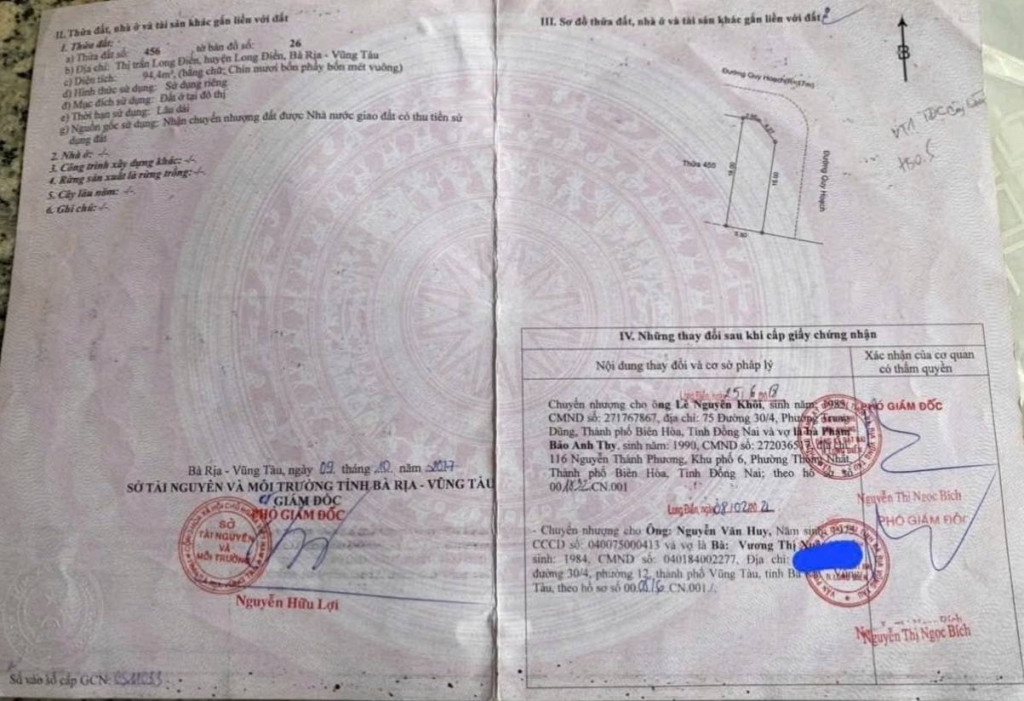 II. Thửa đất, nhà ở và tài sản khác gắn liền với đất
1. Thửa đất:
a) Thửa đất số: 456 tờ bản đồ số: 26
b) Địa chỉ: Thị trấn Long Điền, huyện Long Điền, Bà Rịa - Vũng Tàu
c) Diện tích: 94,4m², (bằng chữ: Chín mươi bốn phẩy bốn mét vuông)
d) Hình thức sử dụng: Sử dụng riêng
đ) Mục đích sử dụng: Đất ở tại đô thị
e) Thời hạn sử dụng: Lâu dài
g) Nguồn gốc sử dụng: Nhận chuyển nhượng đất được Nhà nước giao đất có thu tiền sử
dụng đất
2. Nhà ở: -/-
3. Công trình xây dựng khác: -/-
4. Rừng sản xuất là rừng trồng: -/-
5. Cây lâu năm: -/-
6. Ghi chú: -/-
Bà Rịa - Vũng Tàu, ngày 09 tháng 10 năm
SỞ TÀI NGUYÊN VÀ MÔI TRƯỜNG TỈNH BÀ RỊA - VŨNG TÀU
GIÁM ĐỐC
PHÓ GIÁM ĐỐC
SỞ
TÀI NGUYÊN
VÀ
MÔI TRƯỜNG
Nguyễn Hữu Lợi
Số vào sổ cấp GCN:
III. Sơ đồ thửa đất, nhà ở và tài sản khác gắn liền với đất
B
Đường Quy Hoạch
Thửa 455
Đường Quy Hoạch
IV. Những thay đổi sau khi cấp giấy chứng nhận
Nội dung thay đổi và cơ sở pháp lý
Xác nhận của cơ quan
có thẩm quyền
Long Điền, ngày 25
Chuyển nhượng cho ông Lê Nguyên Khôi, sinh năm: 1985,
CMND số: 271767867, địa chỉ: 75 Đường 30/4, Phường Trung
Dũng, Thành phố Biên Hòa, Tỉnh Đồng Nai và vợ là bà Phạm
Bảo Anh Thy, sinh năm: 1990, CMND số: địa chỉ:
116 Nguyễn Thành Phương, Khu phố 6, Phường Thống Nhất,
Thành phố Biên Hòa, Tỉnh Đồng Nai; theo hồ sơ số
CN.001
PHÓ GIÁM ĐỐC
Nguyễn Thị Ngọc Bích
Long Điền, ngày 08
- Chuyển nhượng cho Ông: Nguyễn Văn Huy, Năm sinh: 1975
CCCD số: 040075000413 và vợ là Bà: Vương Thị
sinh: 1984, CMND số: 040184002277, Địa chỉ:
đường 30/4, phường 12, thành phố Vũng Tàu, tỉnh Bà Vũng
Tàu, theo hồ sơ số CN.001./.
PHÓ GIÁM ĐỐC
Nguyễn Thị Ngọc Bích